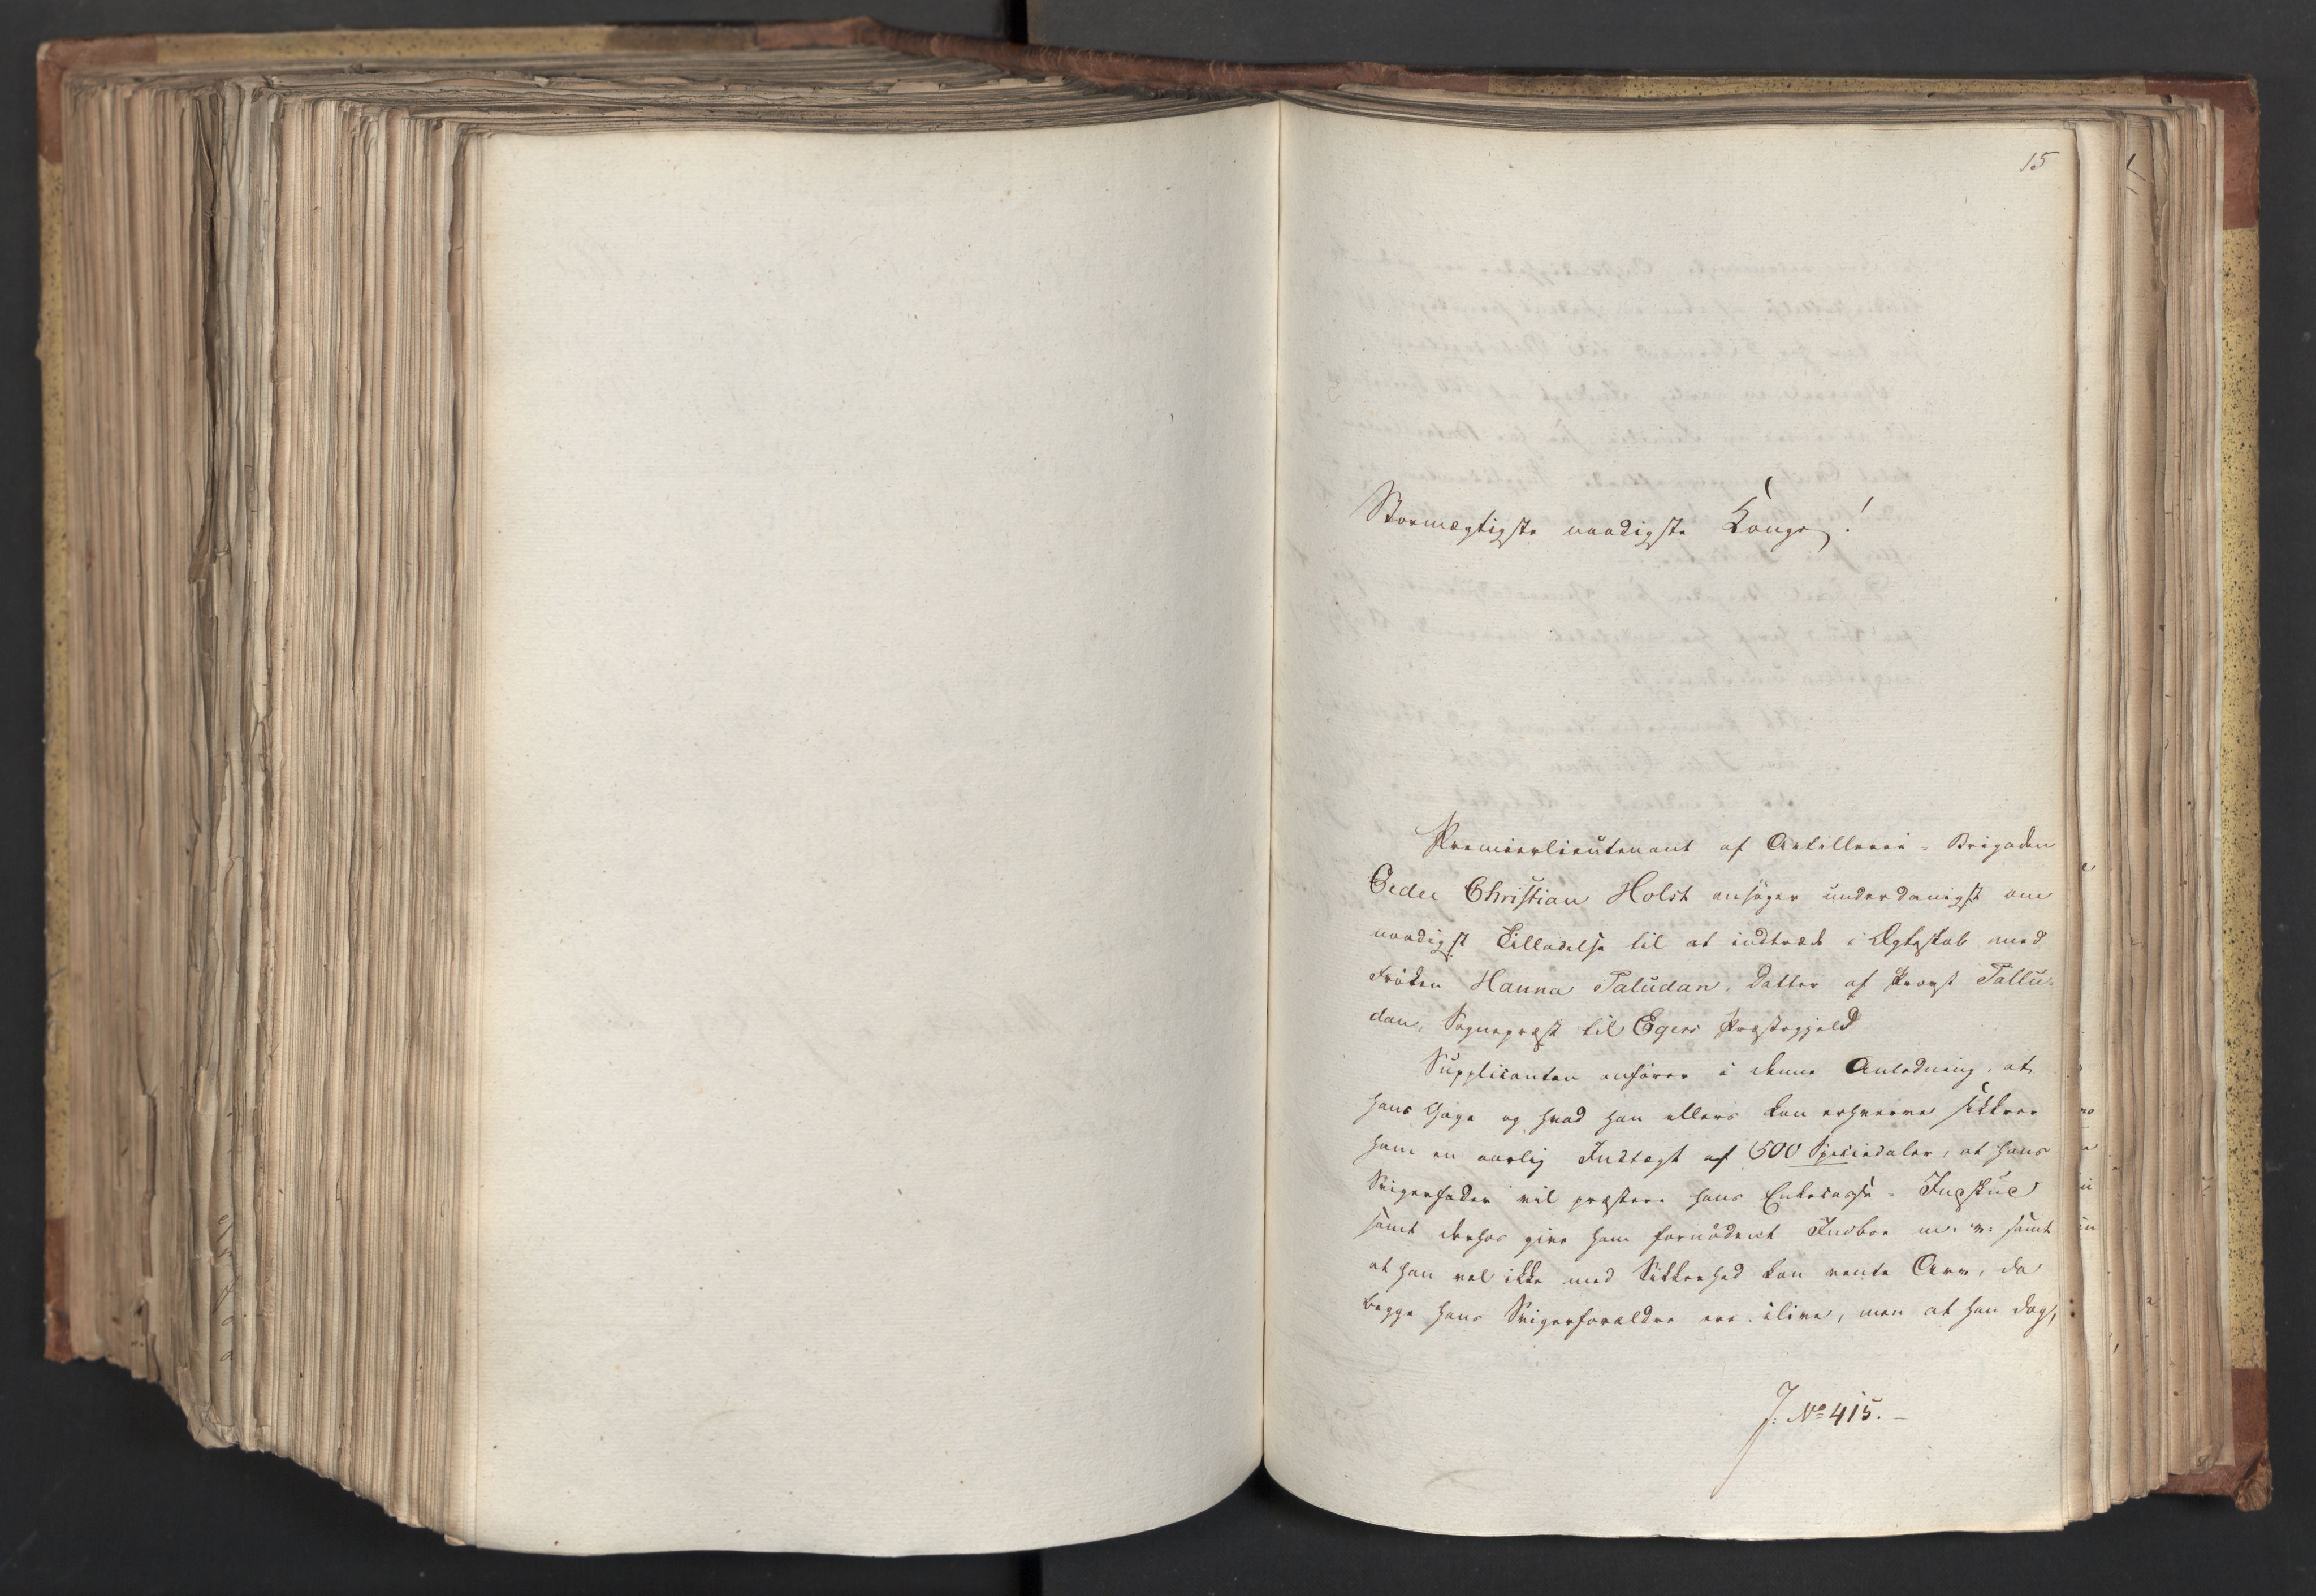 15
Stormægtigste naadigste Konge!
Premierlieutenant af Artillerie-Brigaden
Peder Christian Holst ansöger underdanigst om
naadigst Tilladelse til at indtræde i Ægteskab med
Fröken Hanna Paludan, Datter af Provst Pallu-
dan, Sognepræst til Egers Præstegjeld
Supplicanten anförer i denne Anledning, at
hans Gage og hvad han ellers kan erhverve sikkrer
ham en aarlig Indtægt af 500 Speciedaler, at hans
Svigerfader vil præstere hans Enkecasse-Indskud
samt derhos give ham fornödent Indboe m: v: samt
at han vel ikke med Sikkerhed kan vente Arv, da
begge hans Svigerforældre ere ilive, men at han dog,
J: No 415.-